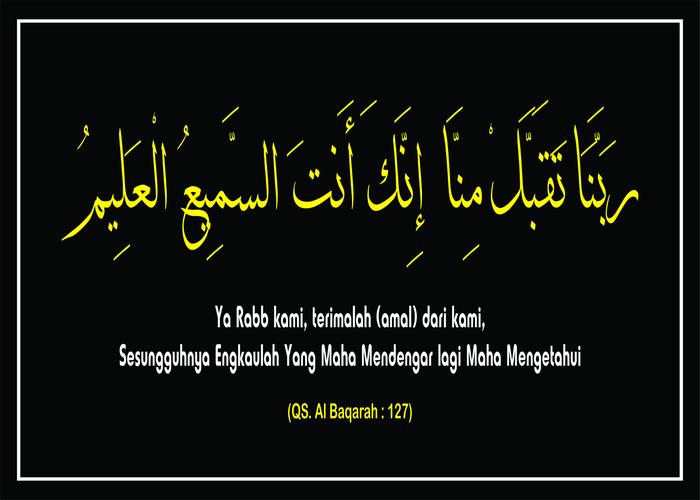 رَبَّنَا تَقَبَّلْ مِنَّا إِنَّكَ أَنتَ السَّمِيعُ الْعَلِيمُ
Ya Rabb kami, terimalah (amal) dari kami,
Sesungguhnya Engkaulah Yang Maha Mendengar lagi Maha Mengetahui
(QS. Al Baqarah : 127)